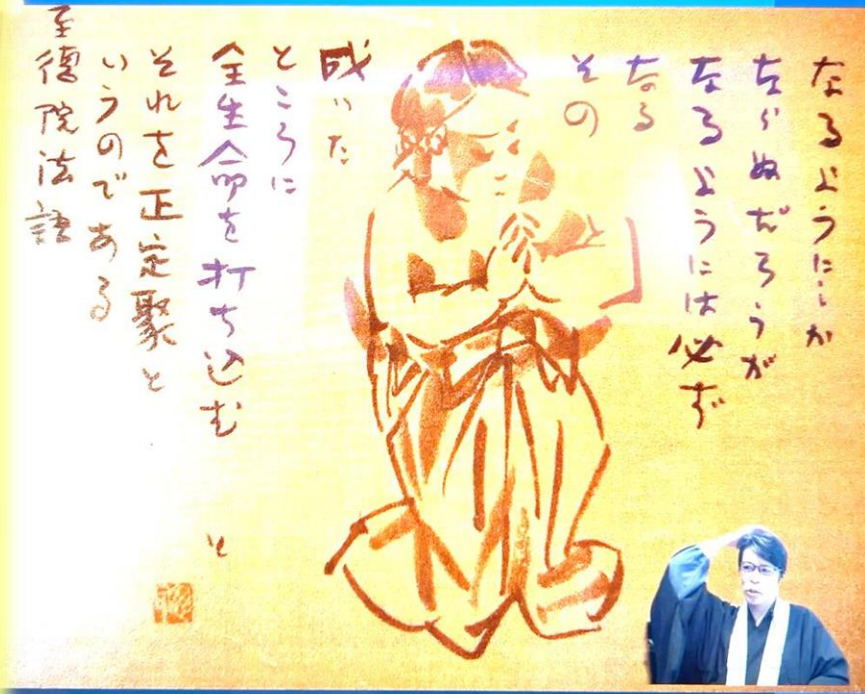 なるようにしか
ならぬだろうが
なるようには必ず
なる
その
成った
ところに
全生命を打ち込む
それを正定聚と
いうのである
至徳院法語